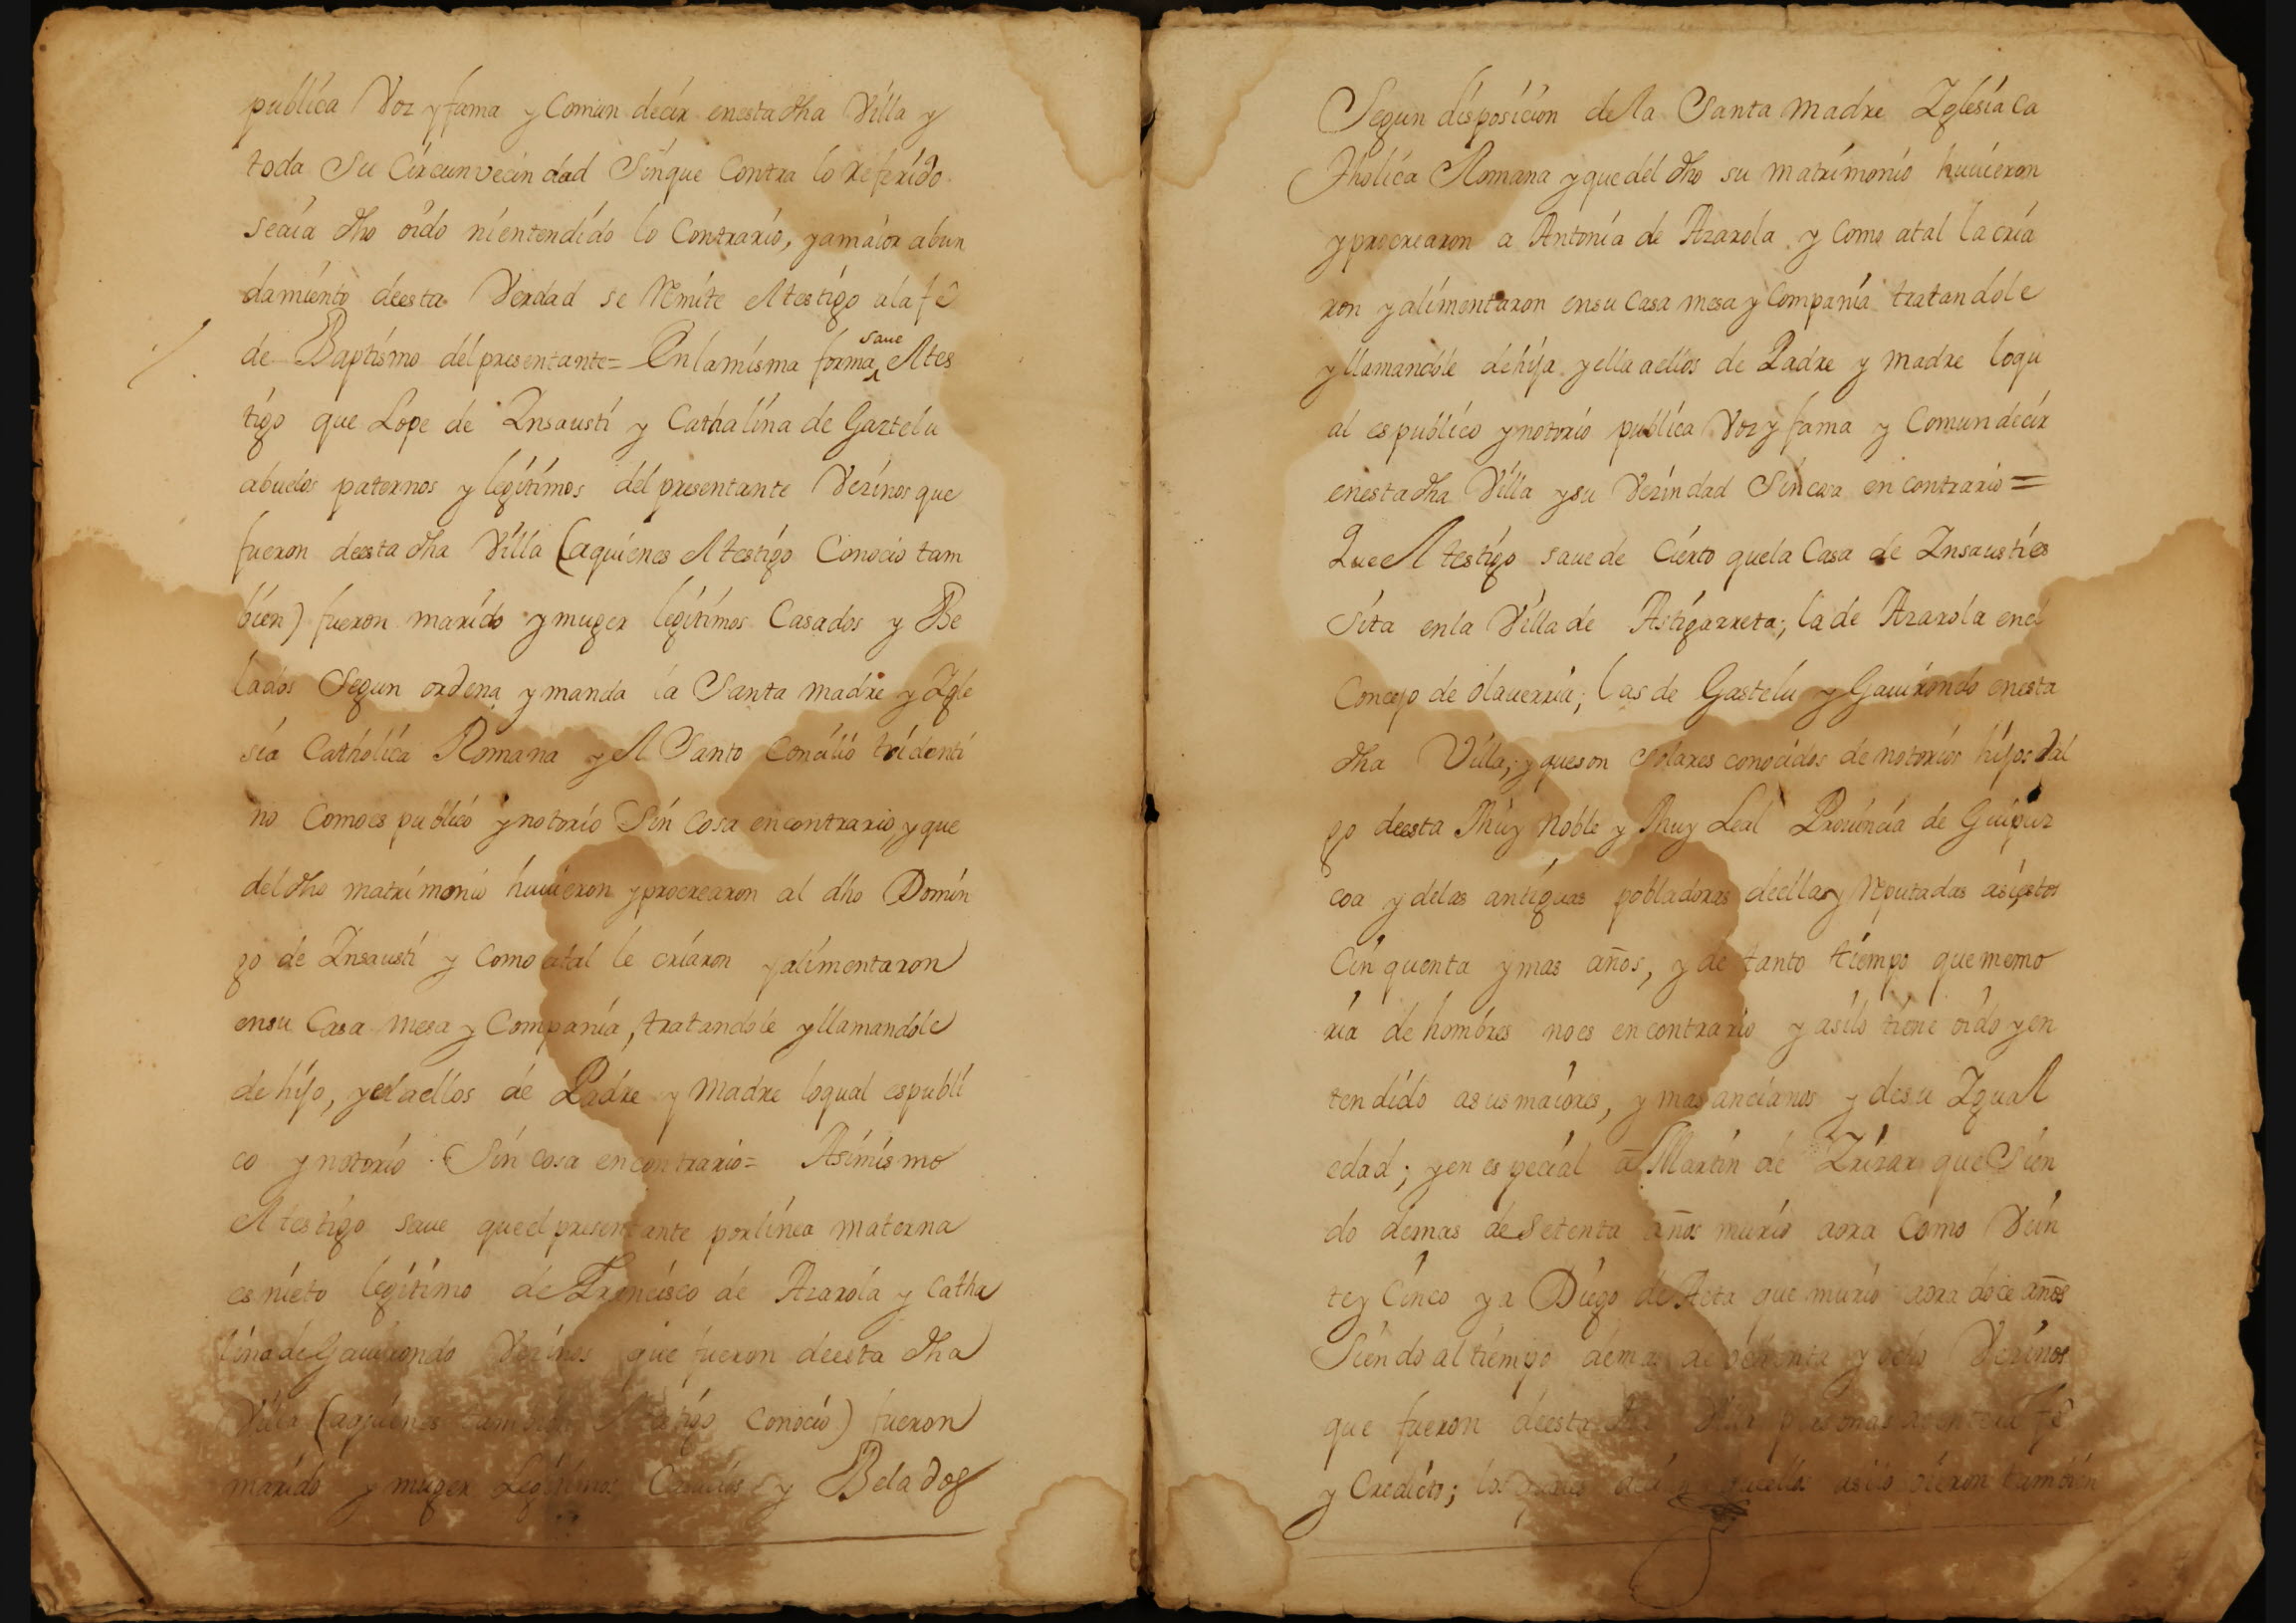 publica Voz y fama y Comun decir enesta dha Villa y
toda Su Circunvecindad Sinque Contra lo referido
seaia dho oido nientendido lo Contrario, yamaior abun
damiento deesta Verdad se Remite eltestigo alafe
de Baptismo delpresentante= En lamisma forma saue eltes
tigo que Lope de Insausti y Cathalina de Gaztelu
abuelos paternos y legitimos del presentante Vezinos que
fueron deesta dha Villa (aquienes eltestigo Conocio tam
bien) fueron marido y muger legitimos Casados y Be
lados Segun ordena y manda la Santa madre yIgle
sia Catholica Romana y el Santo Concilio tridenti
no Comoes publico ynotorio Sin Cosa encontrario, yque
deldho matrimonio huuieron yprocrearon al dho Domin
go de Insausti y Como atal le criaron yalimentaron
ensu Casa mesa y Compania, tratandole yllamandole
de hijo, yel aellos de Padre y Madre loqual espubli
co ynotorio Sin cosa encontrario= Asimismo
eltestigo saue queel presentante porlinea materna
esnieto legitimo de Francisco de Azarola y Catha
lina de Gauirondo Vezinos que fueron deesta dha
Villa (aquienes tambien eltestigo Conocio) fueron
marido y muger Legitimos Casados y Belados
Segun disposicion dela Santa madre Iglesia Ca
tholica Romana yque del dho su matrimonio huuieron
yprocrearon a Antonia de Azarola y Como atal la cria
ron yalimentaron ensu Casa mesa y Compania tratandole
yllamandole dehija yella aellos de Padre y madre loqu
al espublico ynotorio publica Voz y fama y Comun decir
enesta dha Villa ysu Vezindad Sin cosa en contrario=
Que el testigo saue de Cierto quela Casa de Insausti es
Sita enla Villa de Astigarreta; la de Azarola enel
Concejo de olauerria; las de Gaztelu y Gauirondo enesta
dha Villa; y queson Solares conocidos de notorios hijos dal
go deesta Muy Noble y Muy Leal Prouincia de Guipuz
coa ydelas antiguas pobladoras deella y Reputadas asi estos
Cinquenta ymas años, y de tanto tiempo que memo
ria de hombres noes en contrario yasilo tiene oido yen
tendido asusmaiores, y mas ancianos y desu Igual
edad; yen especial a Martin de Irizar que Sien
do demas de Setenta años murio aora Como Vein
tey Cinco ya Diego de Aeta que murio aora doce años
Siendo altiempo demas de ochenta y ocho Vezinos
que fueron deesta dha Villa personas deentera fe
y Credito; los quales decian queellos asilo oieron tambien